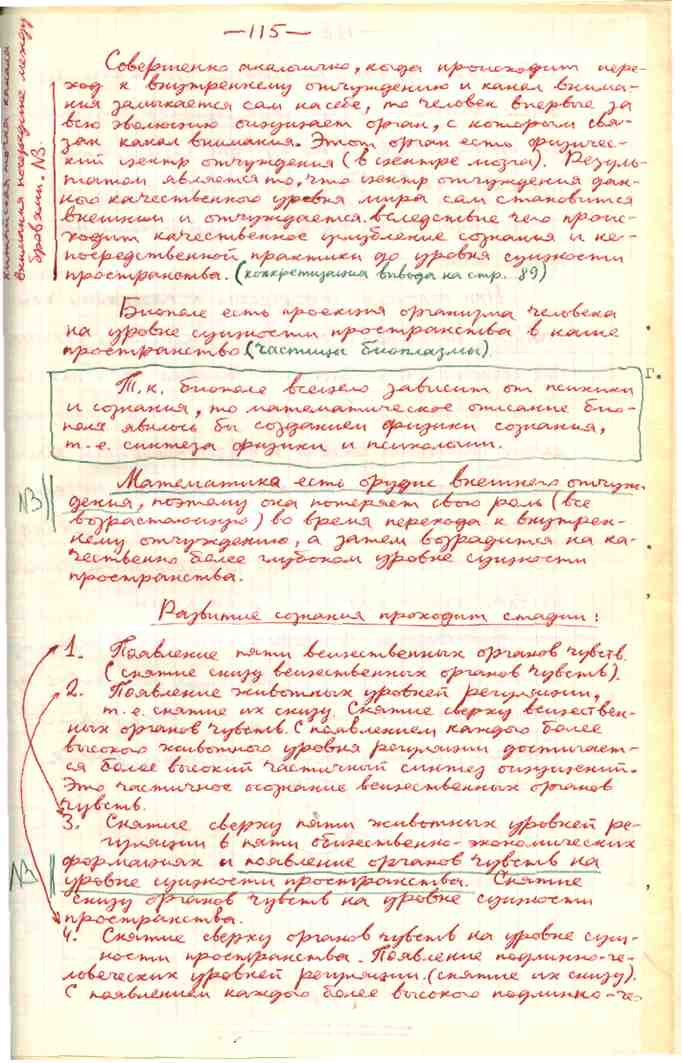 —115—
Совершенно аналогично, когда происходит пере-
ход к внутреннему отчуждению и канал внима-
ния замыкается сам на себе, то человек впервые за
всю эволюцию ощущает орган, с которым свя-
зан канал внимания. Этот орган есть физичес-
кий центр отчуждения (в центре мозга). Резуль-
татом является то, что центр отчуждения дан-
ного качественного уровня мира сам становится
внешним и отчуждается. Вследствие чего проис-
ходит качественное углубление сознания и не-
посредственной практики до уровня сущности
пространства. (конкретизация вывода на стр. 89)
китайская точка канала
внимания посередине между
бровями. NB.
Биополе есть проекция организма человека
на уровне сущности пространства в наше
пространство (частицы биоплазмы)
Т.к. биополе всецело зависит от психики
и сознания, то математическое описание био-
поля явилось бы созданием физики сознания,
т.е. синтеза физики и психологии.
Г.
NB
Математика есть орудие внешнего отчуж-
дения, поэтому она потеряет свою роль (все
возрастающую) во время перехода к внутрен-
нему отчуждению, а затем возродится на ка-
чественно более глубоком уровне сущности
пространства.
Развитие сознания проходит стадии:
1. Появление пяти вещественных органов чувств.
(снятие снизу вещественных органов чувств).
2. Появление животных уровней регуляции,
т.е. снятие их снизу. Снятие сверху веществен-
ных органов чувств. С появлением каждого более
высокого животного уровня регуляции достигает-
ся более высокий частичный синтез ощущений.
Это частичное осознание вещественных органов
чувств.
3. Снятие сверху пяти животных уровней ре-
гуляции в пяти общественно-экономических
формациях и появление органов чувств на
NB
уровне сущности пространства. Снятие
снизу органов чувств на уровне сущности
пространства.
4. Снятие сверху органов чувств на уровне сущ-
ности пространства. Появление подлинно-че-
ловеческих уровней регуляции. (снятие их снизу).
С появлением каждого более высокого подлинно-че-